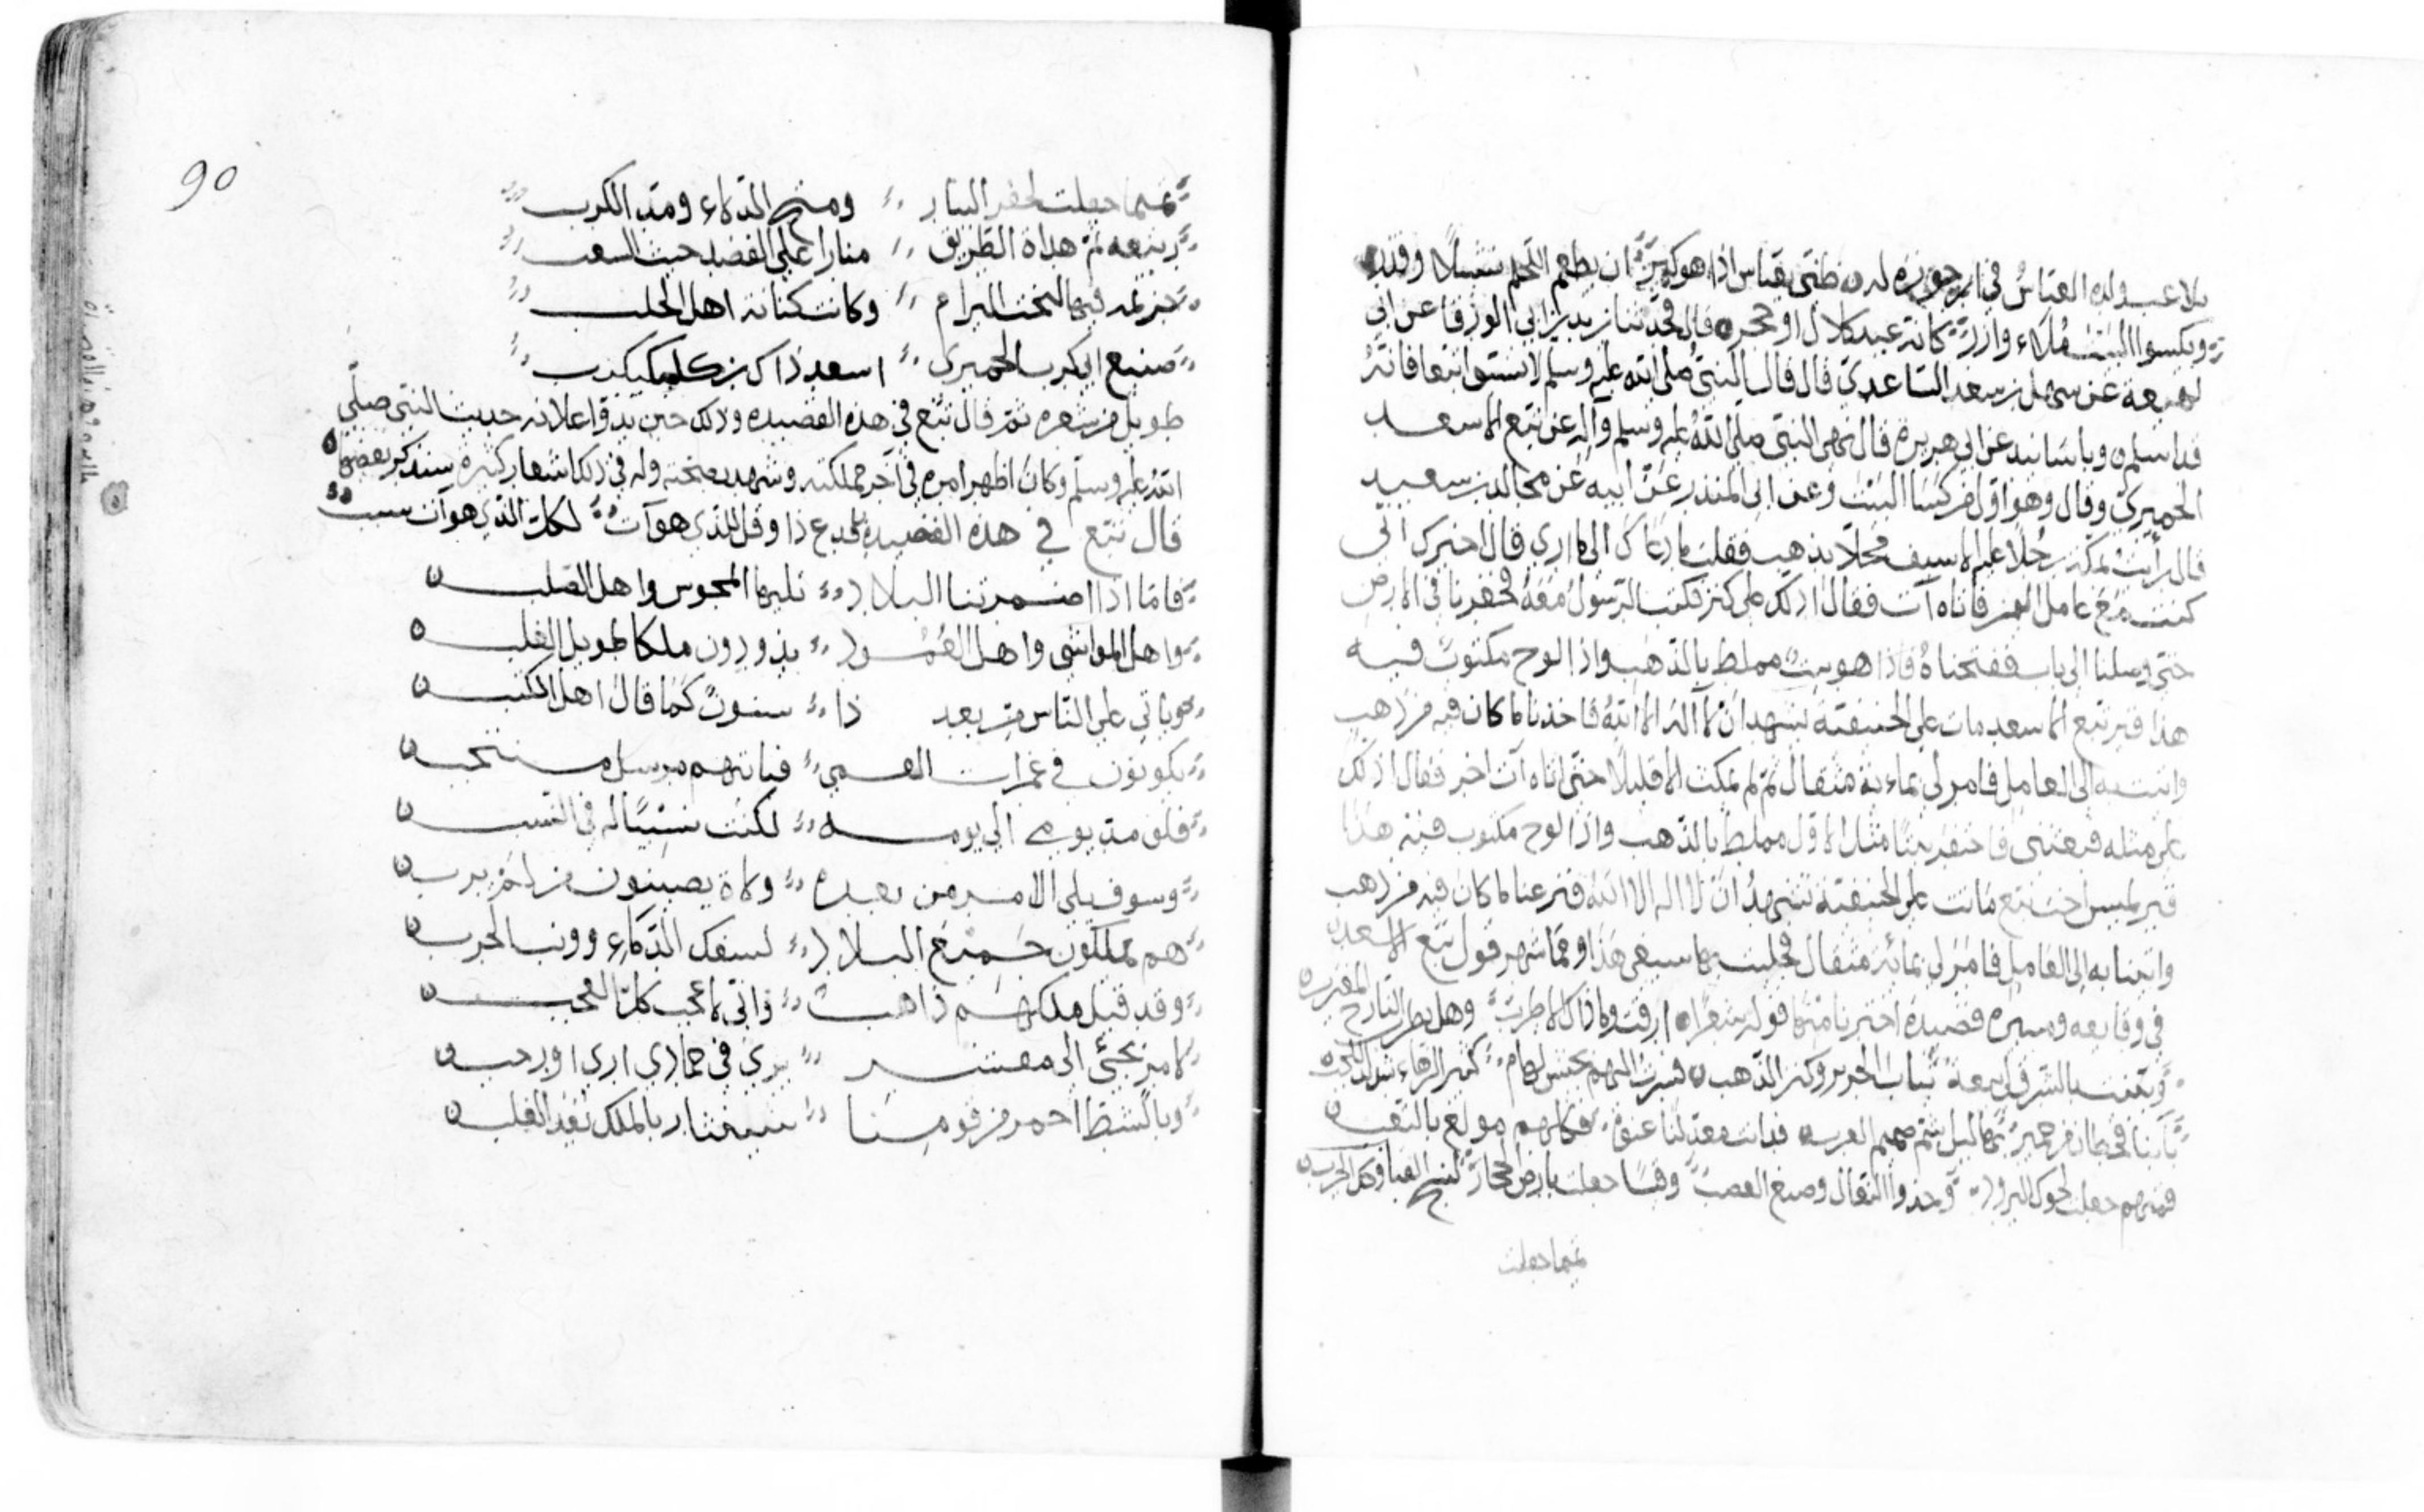 يلاعب ولده العباس في ارجوزة له ظني بعباس اذا هو كبر ان يطعم اللحم
ويكسوا البيت ملاء وازر كانه عبد كلال او حجر قال فحدثنا زيد بن ابي الورقا عن ابي
لهيعة عن سهل بن سعد الساعدي قال قال النبي صلى الله عليه وسلم لا تسبوا تبعا فانه
قد اسلم وباسانيد عن ابي هريرة قال نهى النبي صلى الله عليه وسلم وآله عن تبع الاسعد
الحميري وقال وهو اول من كسا البيت وعن ابي المنذر عن ابيه عن مجالد بن سعيد
قال رأيت بمكة رجلا عليه سيف محلا بذهب فقلت ما دعاك الى ما ارى قال اخبرك اني
كنت مع عامل اليمن فاتاه آت فقال ادلك على كنز فكتب الرسول معه فحفرنا في الارض
حتى وصلنا الى باب ففتحناه فاذا هو بيت مملط بالذهب واذا لوح مكتوب فيه
هذا قبر تبع الاسعد مات على الحنيفية يشهد ان لا اله الا الله فاخذنا ما كان فيه من ذهب
واتيت به الى العامل فامر لي بماءية مثقال ثم لم نمكث الا قليلا حتى اتاه آت اخر فقال ادلك
على مثله فبعثني فاحتفر بيتا مثل الاول مملط بالذهب واذا لوح مكتوب فيه هذا
قبر لميس اخت تبع ماتت على الحنيفية تشهد ان لا اله الا الله فنزعنا ما كان فيه من ذهب
واتينا به الى العامل فامر لي بمائة مثقال فحليت بها سيفي هذا ومما شهر قول تبع الاسعد
في وقايعه ومسيره قصيدة اخترنا منها قوله شعرا ارقت وما ذاك لاطرب وهل يطرب النازح المغترب
ثياب الحرير وكنز الذهب فسرت اليهم بجيش لهام كثير الزهاء شديد اللجب
بابنا قحطان من حمير بهاليل شم صميم العرب فدانت معد لنا عنوة فكلهم مولع بالتعب
فمنهم جعلت لحوك البرود وحذو النعال وصبغ العصب وقيسا جعلت بارض الحجاز لنسج العبا وكل الحرب
تميما جعلت
90
تميما جعلت لحفر البيار ومتح الدلاء ومد الكرب
ربيعة ثم هداة الطريق منارا على القصد حيث السعب
خزيمة فيها لنحت البرام وكانت كنانة اهل الحلب
صنيع ابكرب الحميري اسعد ذاك بن كليكرب
طويل من شعره ثم قال تبع في هذه القصيدة وذلك حين بدو اعلانه حديث النبي صلى
الله عليه وسلم وكان اظهر امره في آخر مملكته وشهد بصحته وله في ذلك اشعار كثيرة سنذكر بعضها
قال تبع في هذه القصيدة فدع ذا وقل للذي هو آت لكل الذي هو آت سبب
فاما اذا اضمرتنا البلاد تليها المجوس واهل الصلب
واهل المواشي واهل العمود يذودون ملكا طويل الغلب
وياتي على الناس من بعد ذا سنون كما قال اهل الكتب
يكونون في غمرات العمى فياتيهم مرسل منتخب
فلو مد يومي الى يومه لكنت نسيبا له في النسب
وسوف يلي الامر من بعده ولاة يصيبون من لم يرب
هم يملكون جميع البلاد لسفك الدماء وونب الحرب
وقد قيل ملكهم ذاهب واني لاعجب كل العجب
لامر يجئ الى معشر يرى في جمادى ارى او رجب
وبالشط احمر من قومنا سيختار بالملك بعد الغلب